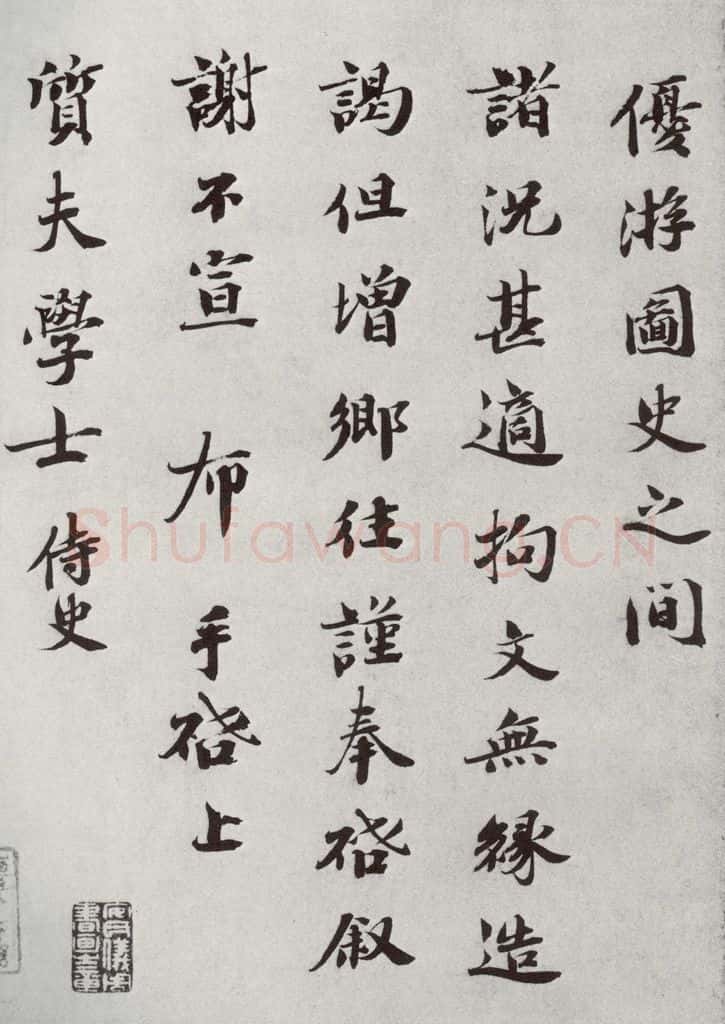 優游圖史之間
諸況甚適拘文無縁造
謁但增鄉往謹奉啓叙
謝不宣 布 手啓上
質夫學士 侍史
Shufawang.CN